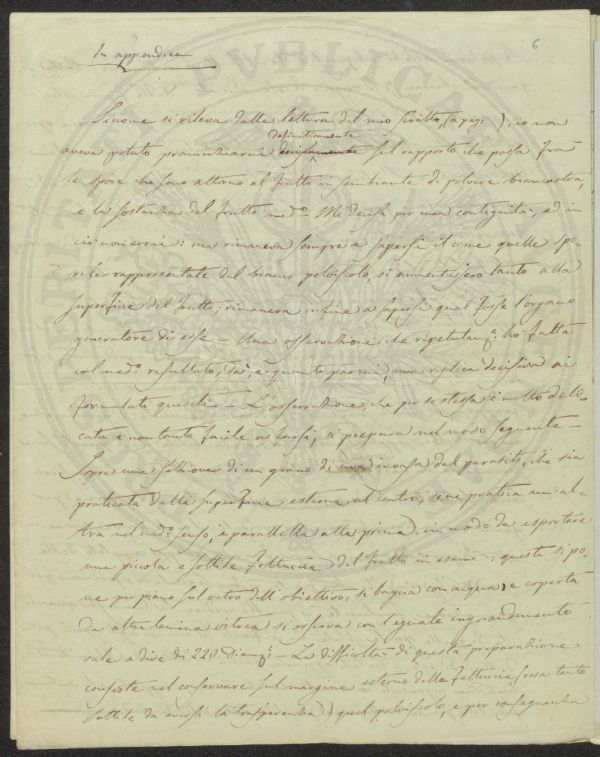 6
In appendice
Siccome si rileva dalla lettura del mio scritto, (a pag: ), io non
definitivamente
aveva potuto pronunziarmi decisamente sul rapporto che passa fra
le spore che sono attorno al frutto in sembiante di polvere biancastra,
e la sostanza del frutto med.° – Mi decisi per una contiguità, ed in
ciò non errai: ma rimaneva sempre a sapersi il come quelle spo-
rule rappresentate dal bianco polviscolo, si aumentassero tanto alla
superficie del frutto; rimaneva infine a sapersi qual fosse l'organo
generatore di esse – Una osservazione, che ripetutam.e ho fatta
col med.° resultato, dà, e quanto parmi, una replica decisiva ai
formulati quesiti – L'osservazione, che per se stessa è molto deli-
cata e non tanto facile a farsi, si prepara nel modo seguente –
Sopra una sezione di un grano di uva invasa dal parasito, che sia
praticata dalla superficie esterna al centro, se ne pratica un'al-
tra nel med.° senso, e parallella alla prima, in modo da esportare
una piccola e sottile fettuccia del frutto in esame: questa si po-
ne per piano sul vetro dell'obiettivo, si bagna con acqua, e coperta
da altra lamina vitrea si osserva con l'eguale ingrandimento
vale a dire di 220 Diam.i – La difficoltà di questa preparazione
consiste nel conservare sul margine esterno della fettuccia, (resa tanto
sottile da aversi la trasparenza) quel polviscolo, e per conseguenza